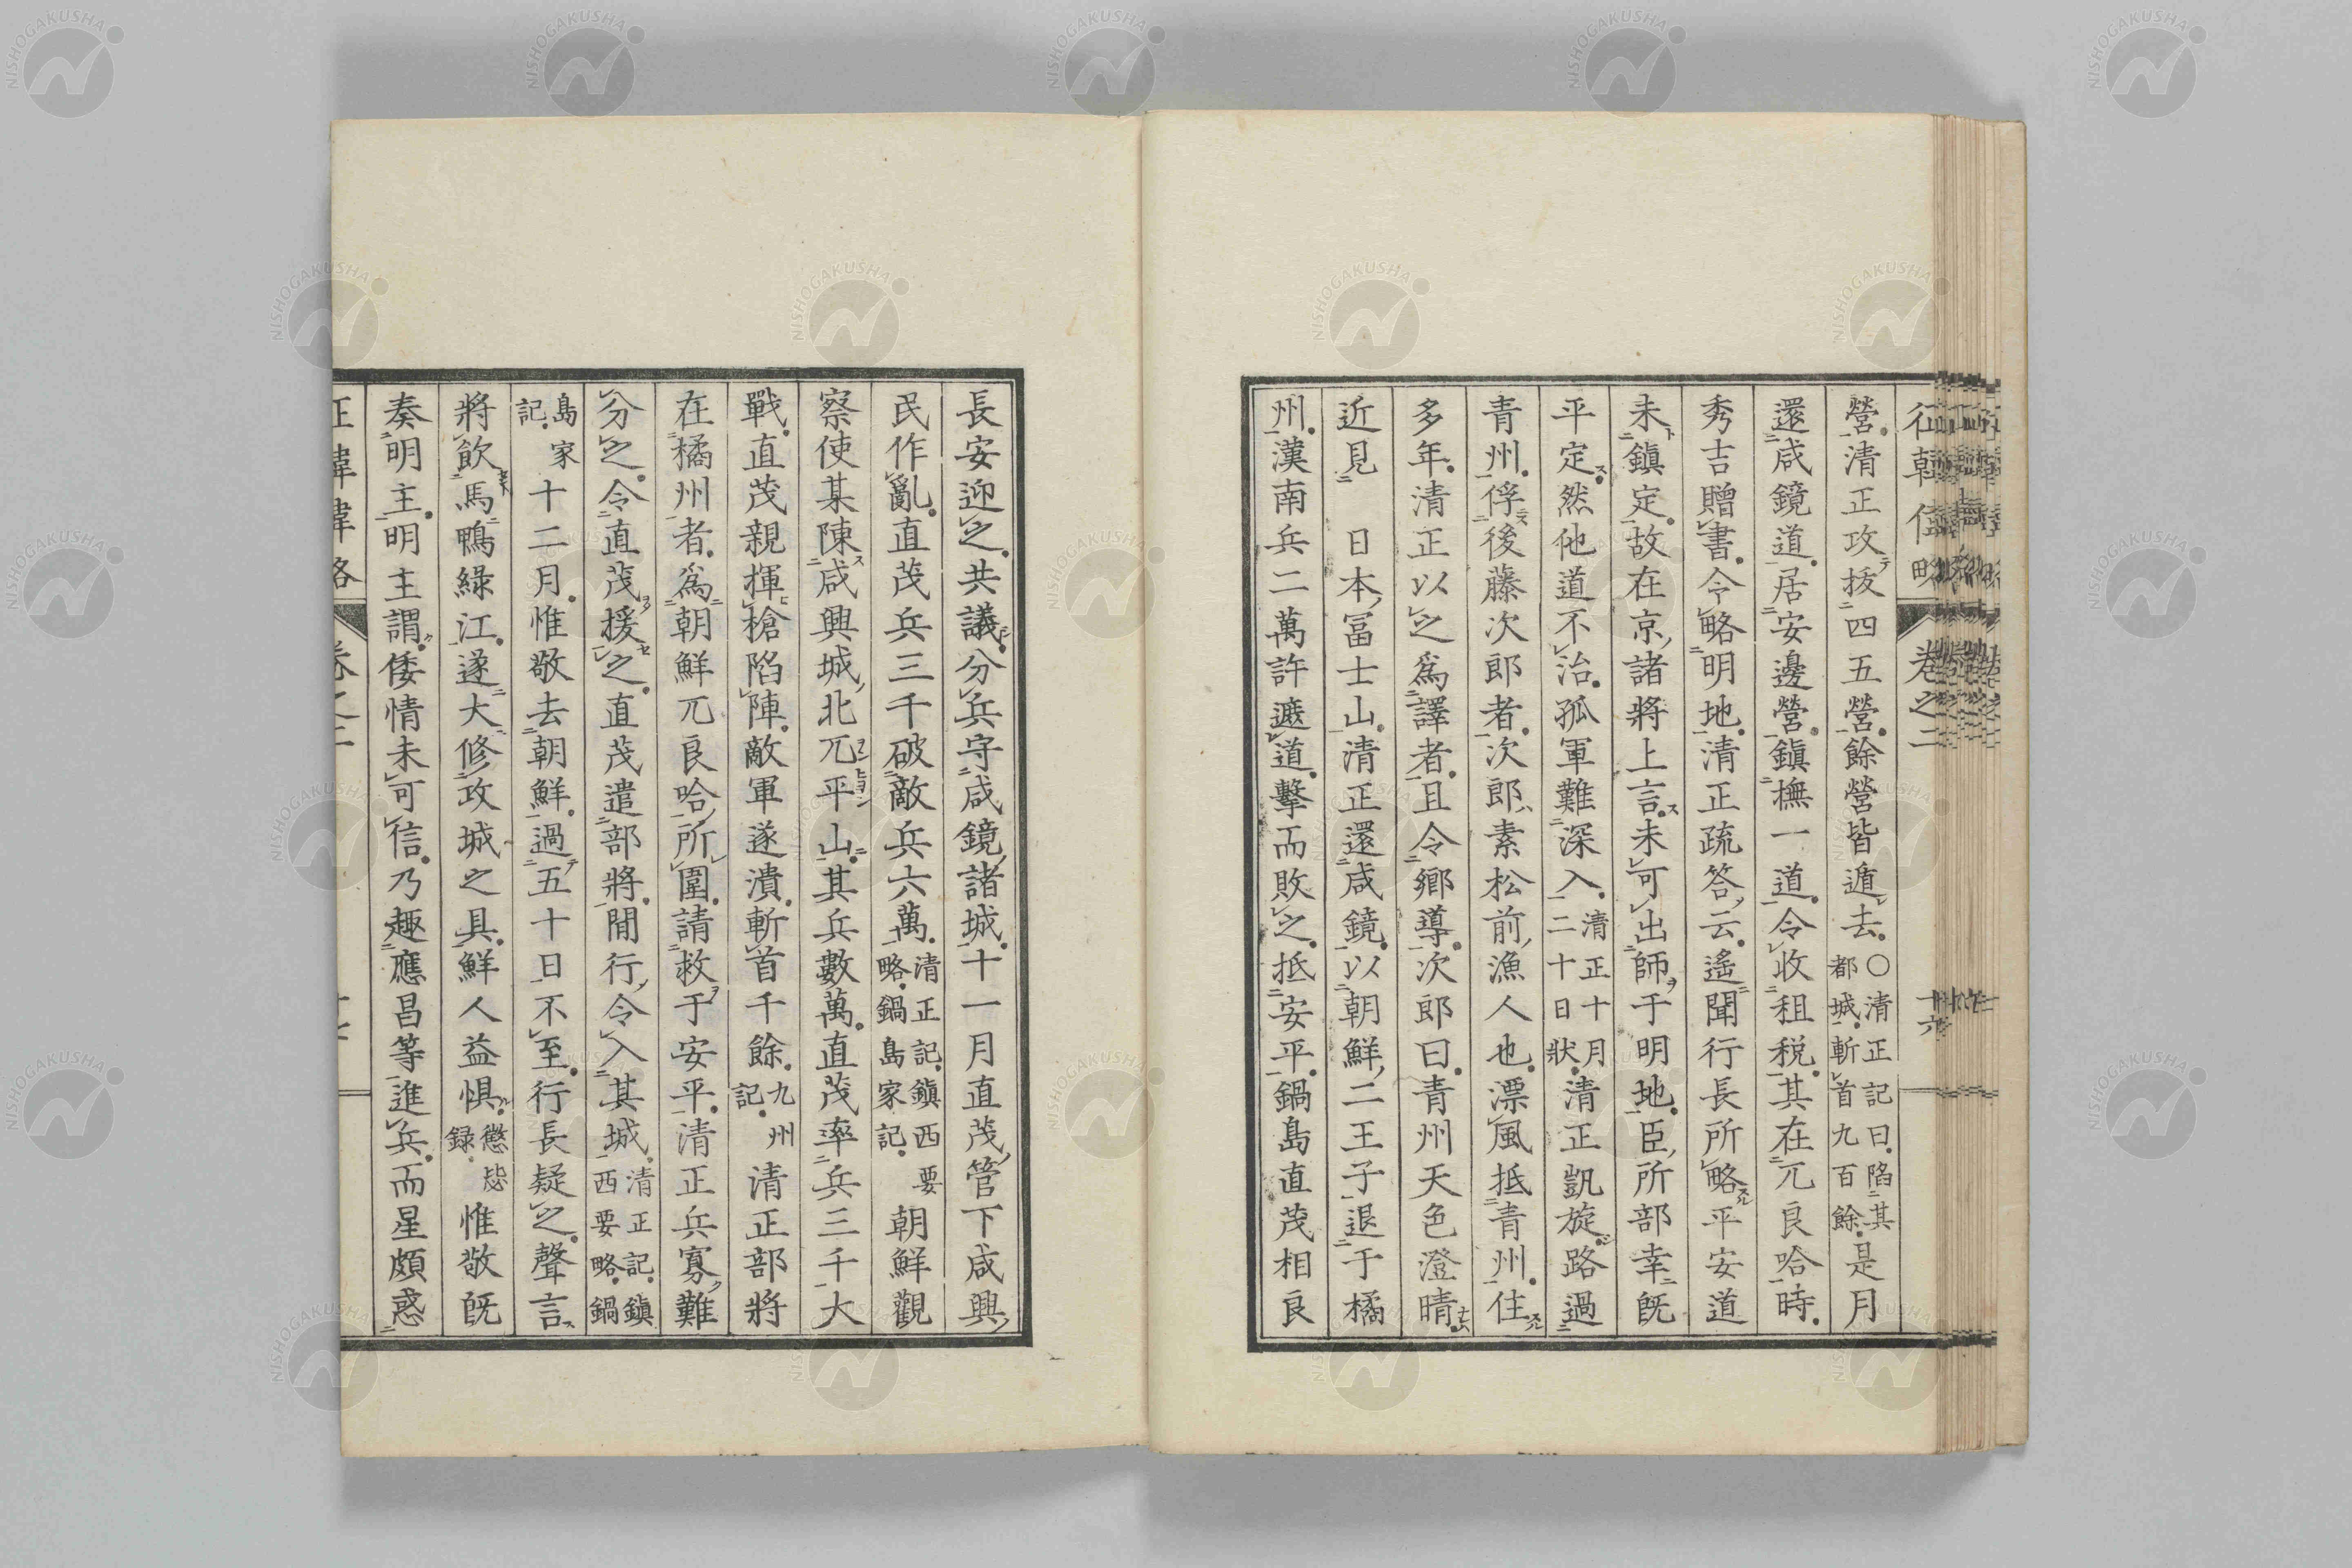 征韓偉略 卷之二 十六
營清正攻拔四五營餘營皆遁去○清正記曰陷其都城斬首九百餘是月
還咸鏡道居安邊營鎭撫一道令收租税其在兀良哈時
秀吉贈書令略明地清正疏答云遙聞行長所略平安道
未鎭定故在京諸將上言未可出師于明地臣所部幸既
平定然他道不治孤軍難深入清正十月二十日狀清正凱旋路過
青州俘後藤次郎者次郎素松前漁人也漂風抵青州住
多年清正以之爲譯者且令鄉導次郎曰青州天色澄晴
近見　日本冨士山清正還咸鏡以朝鮮二王子退于橘
州漢南兵二萬許遮道擊而敗之抵安平鍋島直茂相良
長安迎之共議分兵守咸鏡諸城十一月直茂管下咸興
民作亂直茂兵三千破敵兵六萬清正記鎭西要略鍋島家記朝鮮觀
察使某陳咸興城北兀平山其兵數萬直茂率兵三千大
戰直茂親揮槍陷陣敵軍遂潰斬首千餘九州記清正部將
在橘州者爲朝鮮兀良哈所圍請救于安平清正兵寡難
分之令直茂援之直茂遣部將間行令入其城清正記鎭西要略鍋
島家記十二月惟敬去朝鮮過五十日不至行長疑之聲言
將飮馬鴨綠江遂大修攻城之具鮮人益惧懲毖録惟敬既
奏明主明主謂倭情未可信乃趣應昌等進兵而星頗惑